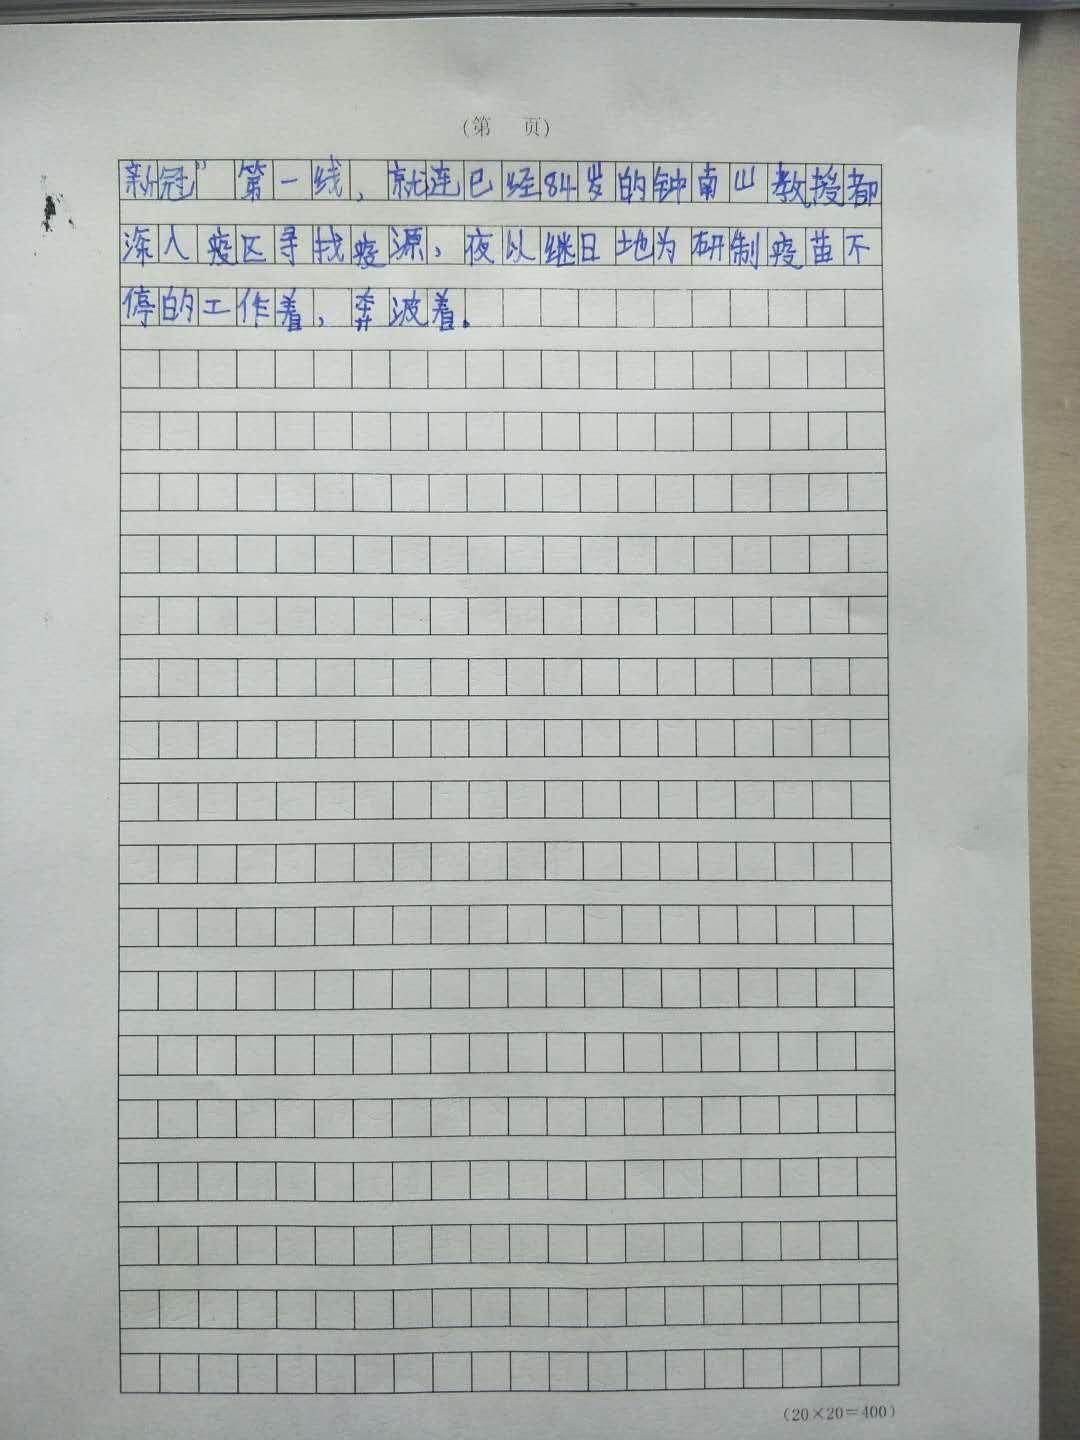 （第　页）
新冠”第一线，就连已经84岁的钟南山教授都
深入疫区寻找疫源，夜以继日地为研制疫苗不
停的工作着，奔波着。
（20×20＝400）